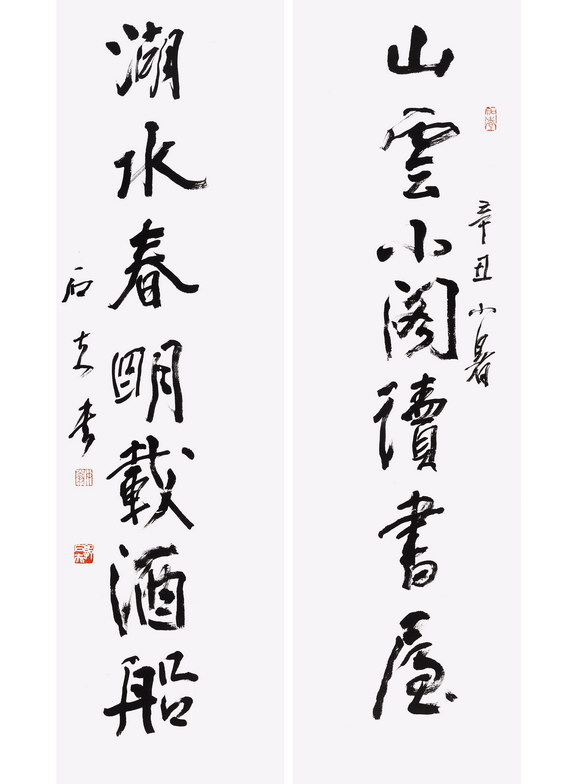 山雲小阁讀書屋
辛丑小暑
湖水春明載酒船